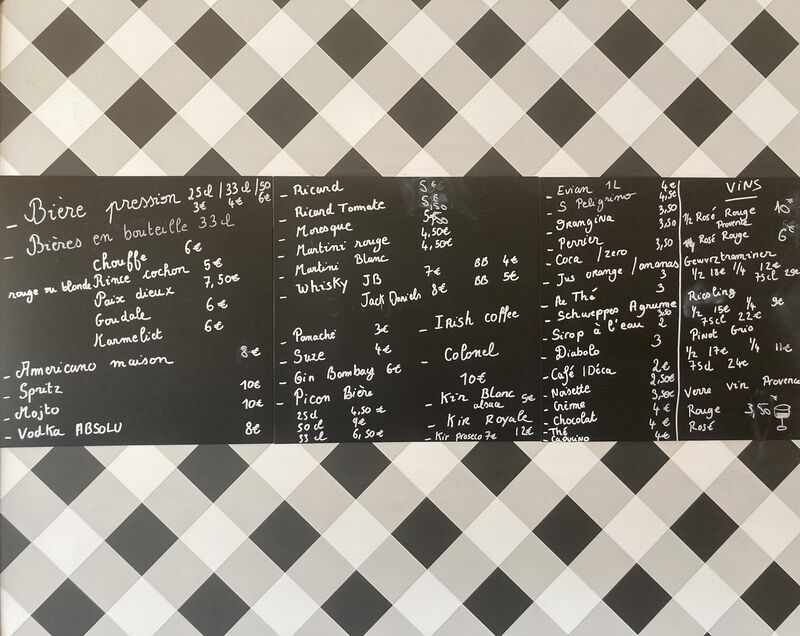 - Bière pression 25cl / 33cl / 50
3€ 4€ 6€
- Bières en bouteille 33cl
Chouffe 6€
rouge ou blonde Rince cochon 5€
Paix dieux 7,50€
Goudale 6€
Karmeliet 6€
- Americano maison 8€
- Spritz 10€
- Mojto 10€
- Vodka ABSOLU 8€
- Ricard 5€
- Ricard Tomate
- Moresque
- Martini rouge 4,50€
- Martini Blanc 4,50€
- Whisky JB 7€ BB 4€
Jack Daniels 8€ BB 5€
- Panaché 3€
- Suze 4€
- Gin Bombay 6€
- Picon Bière
25cl 4,50€
50cl 9€
33cl 6,50€
- Irish coffee
- Colonel
10€
- Kir Blanc 5€
alsace
- Kir Royale
12€
- Kir proseco 7€
- Evian 1L 4€
- S Peligrino 4,5€
- Orangina 3,50
- Perrier 3,50
- Coca / zero 3,50
- Jus orange / ananas
- Ice Thé 3
- Schweppes Agrume 3,50
- Sirop à l'eau 2
- Diabolo 3
- Café / Déca 2€
- Noisette 2,50€
- Crème 3,50€
- Chocolat 4€
- Thé 4€
- Capucino 4€
VINS
1/2 Rosé Rouge 10€
Provence
1/4 Rosé Rouge 6€
Gewurztraminer
1/2 18€ 1/4 12€
75cl 25€
Riesling
1/2 15€ 1/4 9€
75cl 22€
Pinot Gris
1/2 17€ 1/4 11€
75cl 24€
Verre Vin Provence
Rouge 3,50€
Rosé